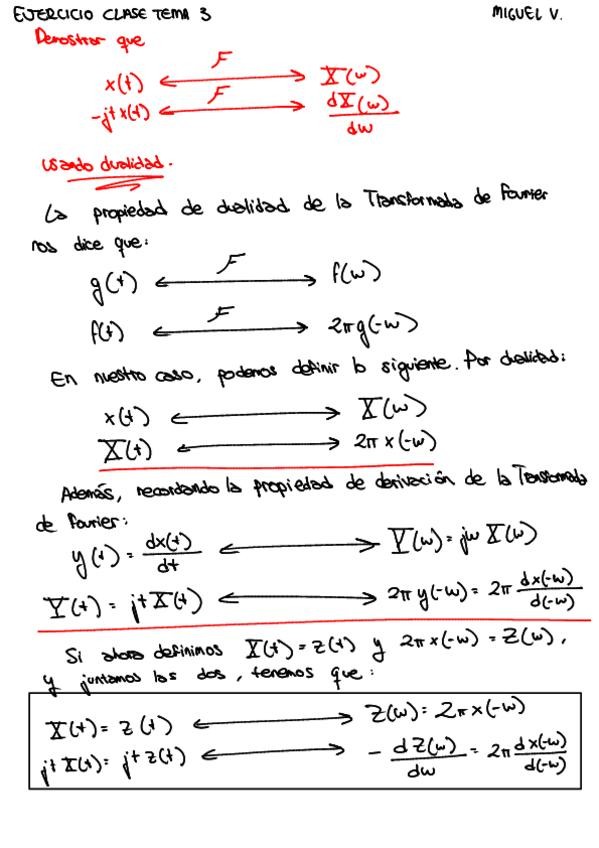 EJERCICIO CLASE TEMA 3 MIGUEL V.
Demostrar que
x(t) ⟷ F X(w)
-jt x(t) ⟷ F dX(w)/dw
usando dualidad.
La propiedad de dualidad de la Transformada de Fourier
nos dice que:
g(t) ⟷ F f(w)
f(t) ⟷ F 2πg(-w)
En nuestro caso, podemos definir lo siguiente. Por dualidad:
x(t) ⟷ X(w)
X(t) ⟷ 2π x(-w)
Además, recordando la propiedad de derivación de la Transformada
de Fourier:
y(t) = dx(t)/dt ⟷ Y(w) = jw X(w)
Y(t) = jt X(t) ⟷ 2π y(-w) = 2π dx(-w)/d(-w)
Si ahora definimos X(t) = z(t) y 2π x(-w) = Z(w),
y juntamos las dos, tenemos que:
X(t) = z(t) ⟷ Z(w) = 2π x(-w)
jt X(t) = jt z(t) ⟷ - dZ(w)/dw = 2π dx(-w)/d(-w)